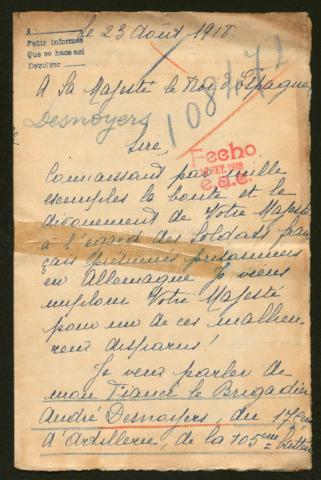 A
Pedir informes
Que se hace así
Devolver
Le 23 Août 1918.
A Sa Majesté le Roi d'Espagne,
108171
Desnoyers
Sire
Fecho
SET. 1918
e.a.e.
Connaissant par mille
exemples la bonté et le
dévouement de Votre Majesté
à l'égard des Soldats fran
çais présumés prisonniers
en Allemagne Je viens
implorer Votre Majesté
pour un de ces malheu-
reux disparus!
Je veux parler de
mon Fiancé le Brigadier
André Desnoyers, du 17ème
d'Artillerie, de la 105ème batterie